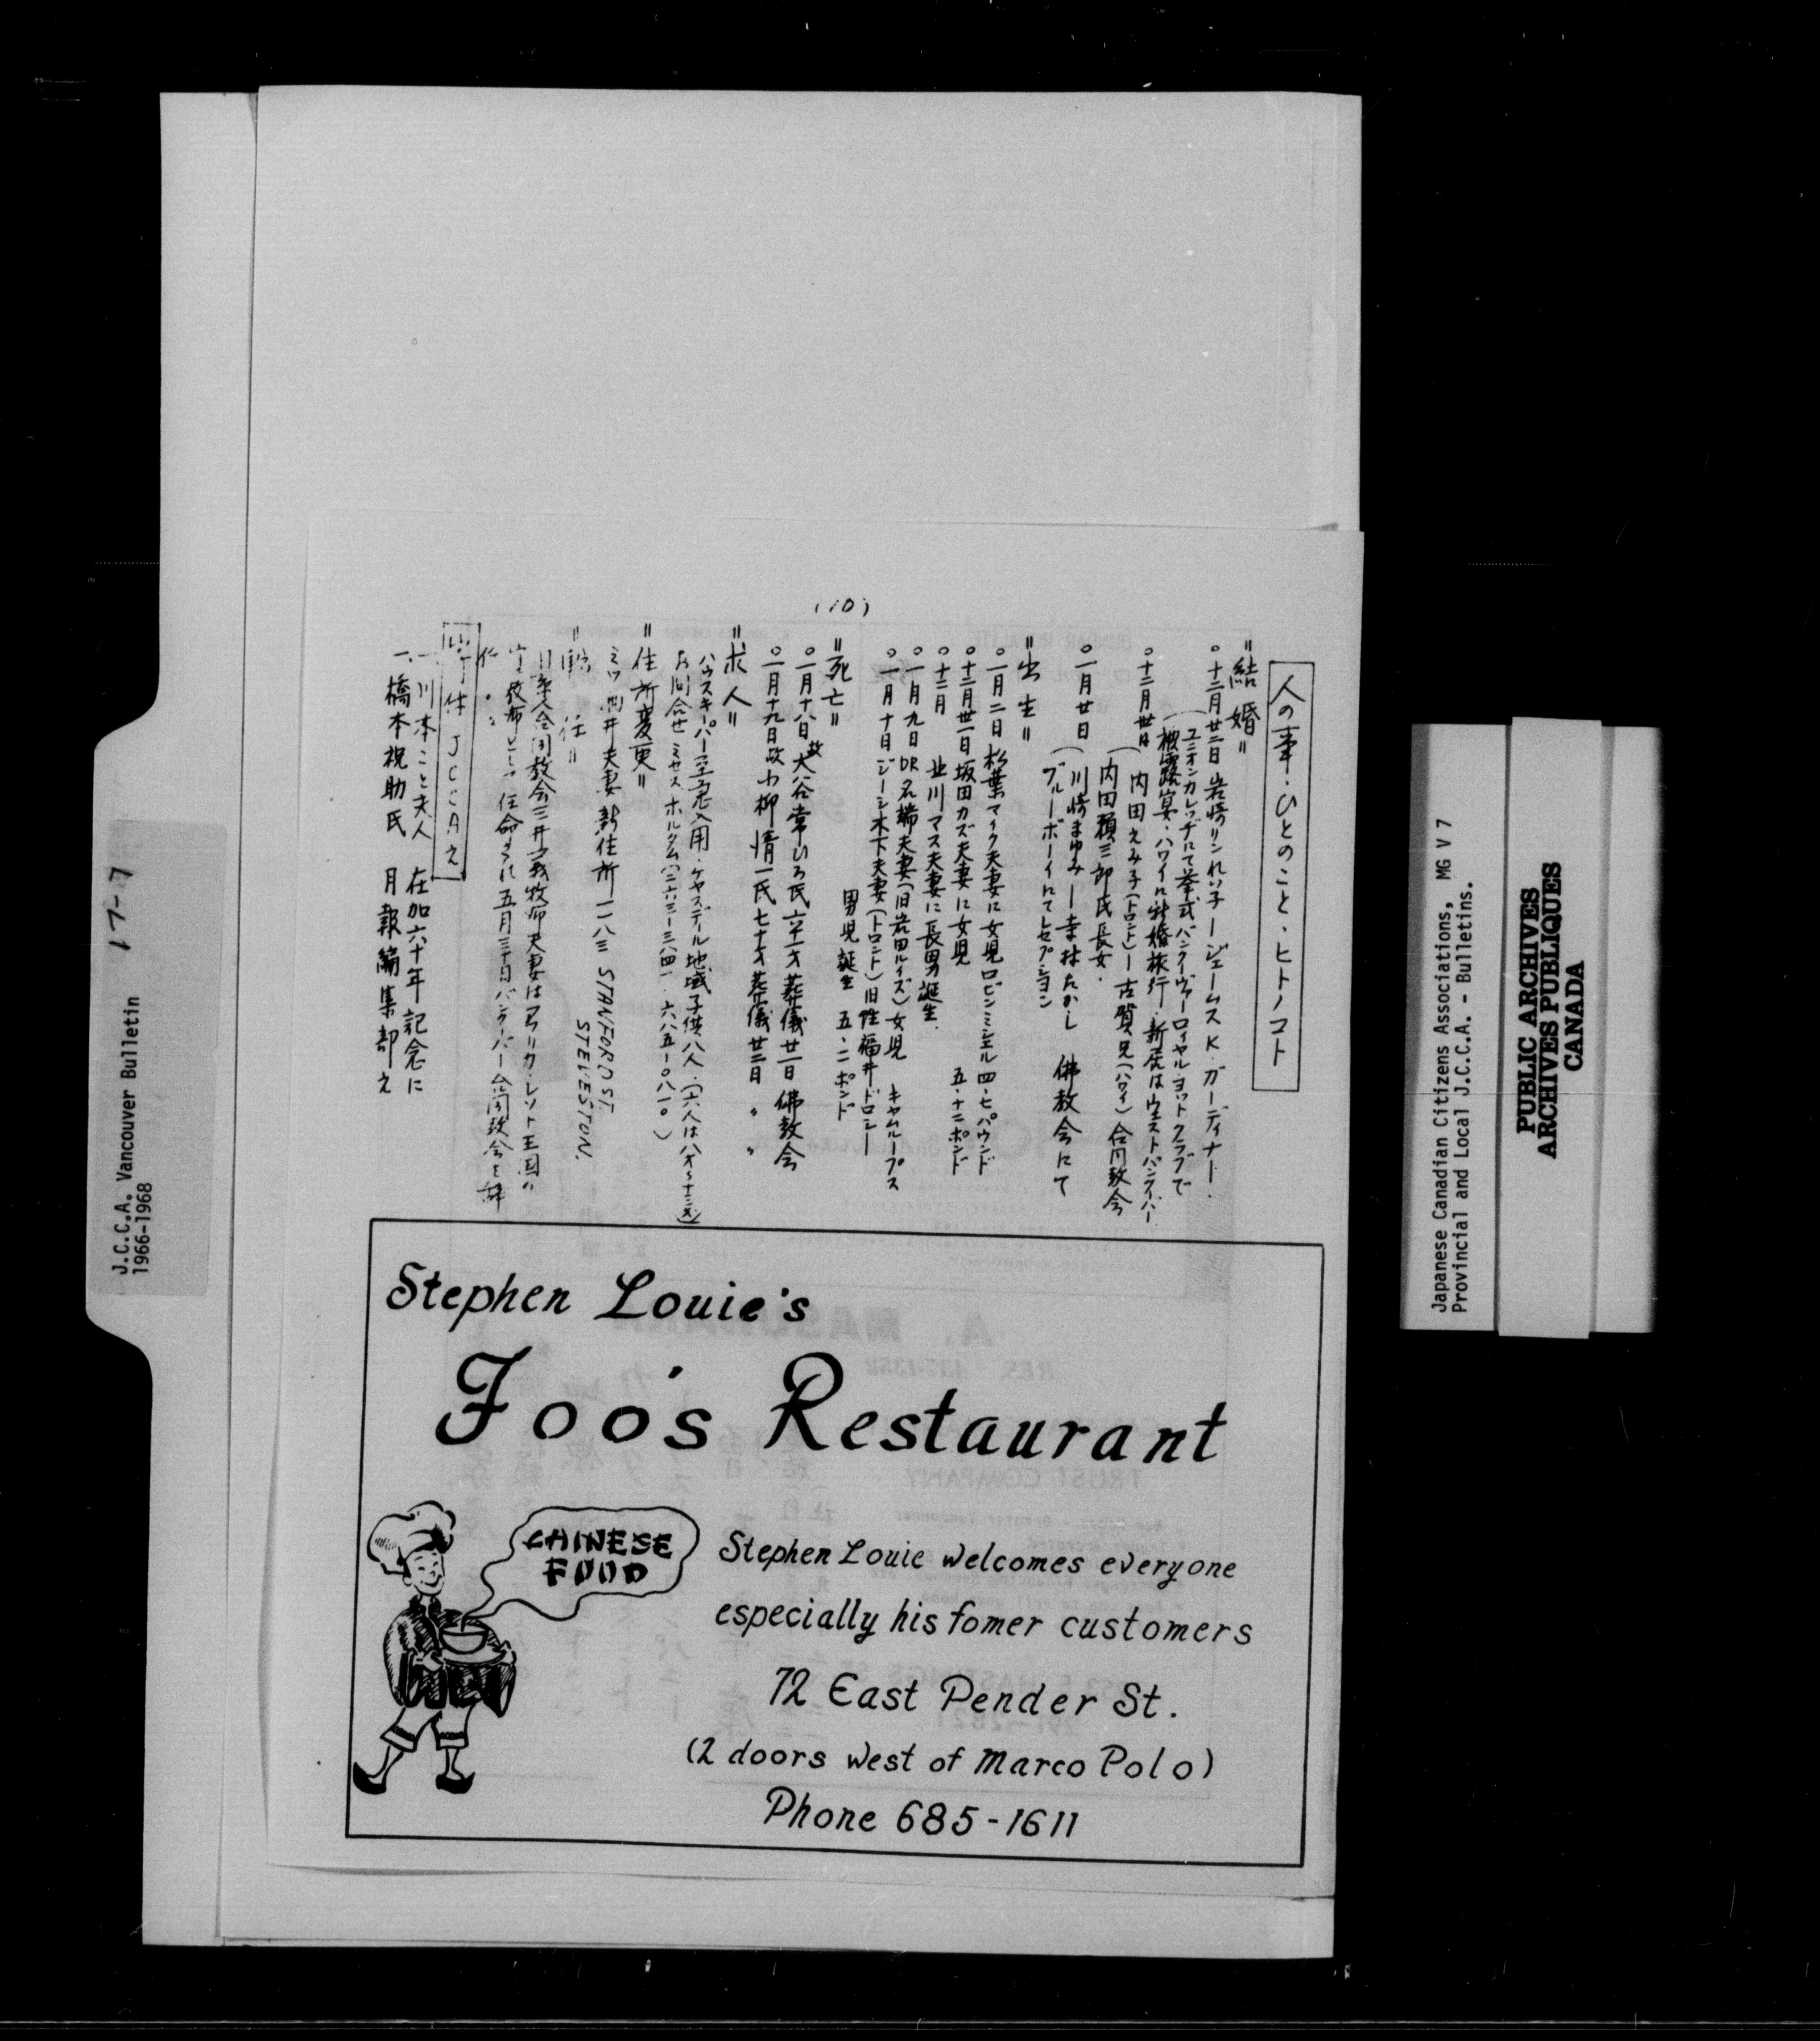 (10)
人の事・ひとのこと・ヒトノコト
＝結婚＝
○十二月廿二日 岩崎リンれい子ージェームス K・ガーディナー・
(ユニオンカレッヂにて挙式バンクーヴァーロイヤル・ヨットクラブで
披露宴・ハワイに新婚旅行・新居はウェストバンクーバー
○十二月廿日 内田えみ子(トロント)ー古賀兄(ハワイ) 合同教会
(内田預三郎氏長女・
○一月廿日 (川崎まゆみー幸村たかし 佛教会にて
ブルーボーイにてレセプション
＝出生＝
○一月二日 松葉マイク夫妻に女児ロビンミシェル 四・七パウンド
○十二月卅一日 坂田カズ夫妻に女児 五・十二ポンド
○十二月 北川マス夫妻に長男誕生・
○一月九日 DR名端夫妻(旧岩田ルイズ)女児 キャムループス
○一月十日 ジーン木下夫妻(トロント)旧姓福井ドロシー
男児誕生 五・二ポンド
＝死亡＝
○一月十八日 故大谷常ひろ氏 葬儀廿一日 佛教会
○一月十九日 故小柳情一氏七十才葬儀廿二日 〃 〃
＝求人＝
ハウスキーパー至急入用・ケヤスデール地域子供八人・(六人は八才〜十二才)
お問合せミセスホルクム(二六三ー三八四一・六八五ー〇八一〇)
＝住所変更＝
ミツ 井夫妻 新住所 一一八三 STANFORD ST.
STEVESTON.
＝転任＝
日系人合同教会三井 牧師夫妻はアフリカ・レソト王国の
牧師として任命され五月三十日バンクーバー合同教会を辞
JCCAえ
一、川本こと夫人 在加六十年記念に
一、橋本祝助氏 月報編集部え
Stephen Louie's
Foo's Restaurant
CHINESE
FOOD
Stephen Louie welcomes everyone
especially his fomer customers
72 East Pender St.
(2 doors west of Marco Polo)
Phone 685-1611
J.C.C.A. Vancouver Bulletin 17-7
1966-1968
Japanese Canadian Citizens Associations, MG V 7
Provincial and Local J.C.C.A. - Bulletins.
PUBLIC ARCHIVES
ARCHIVES PUBLIQUES
CANADA